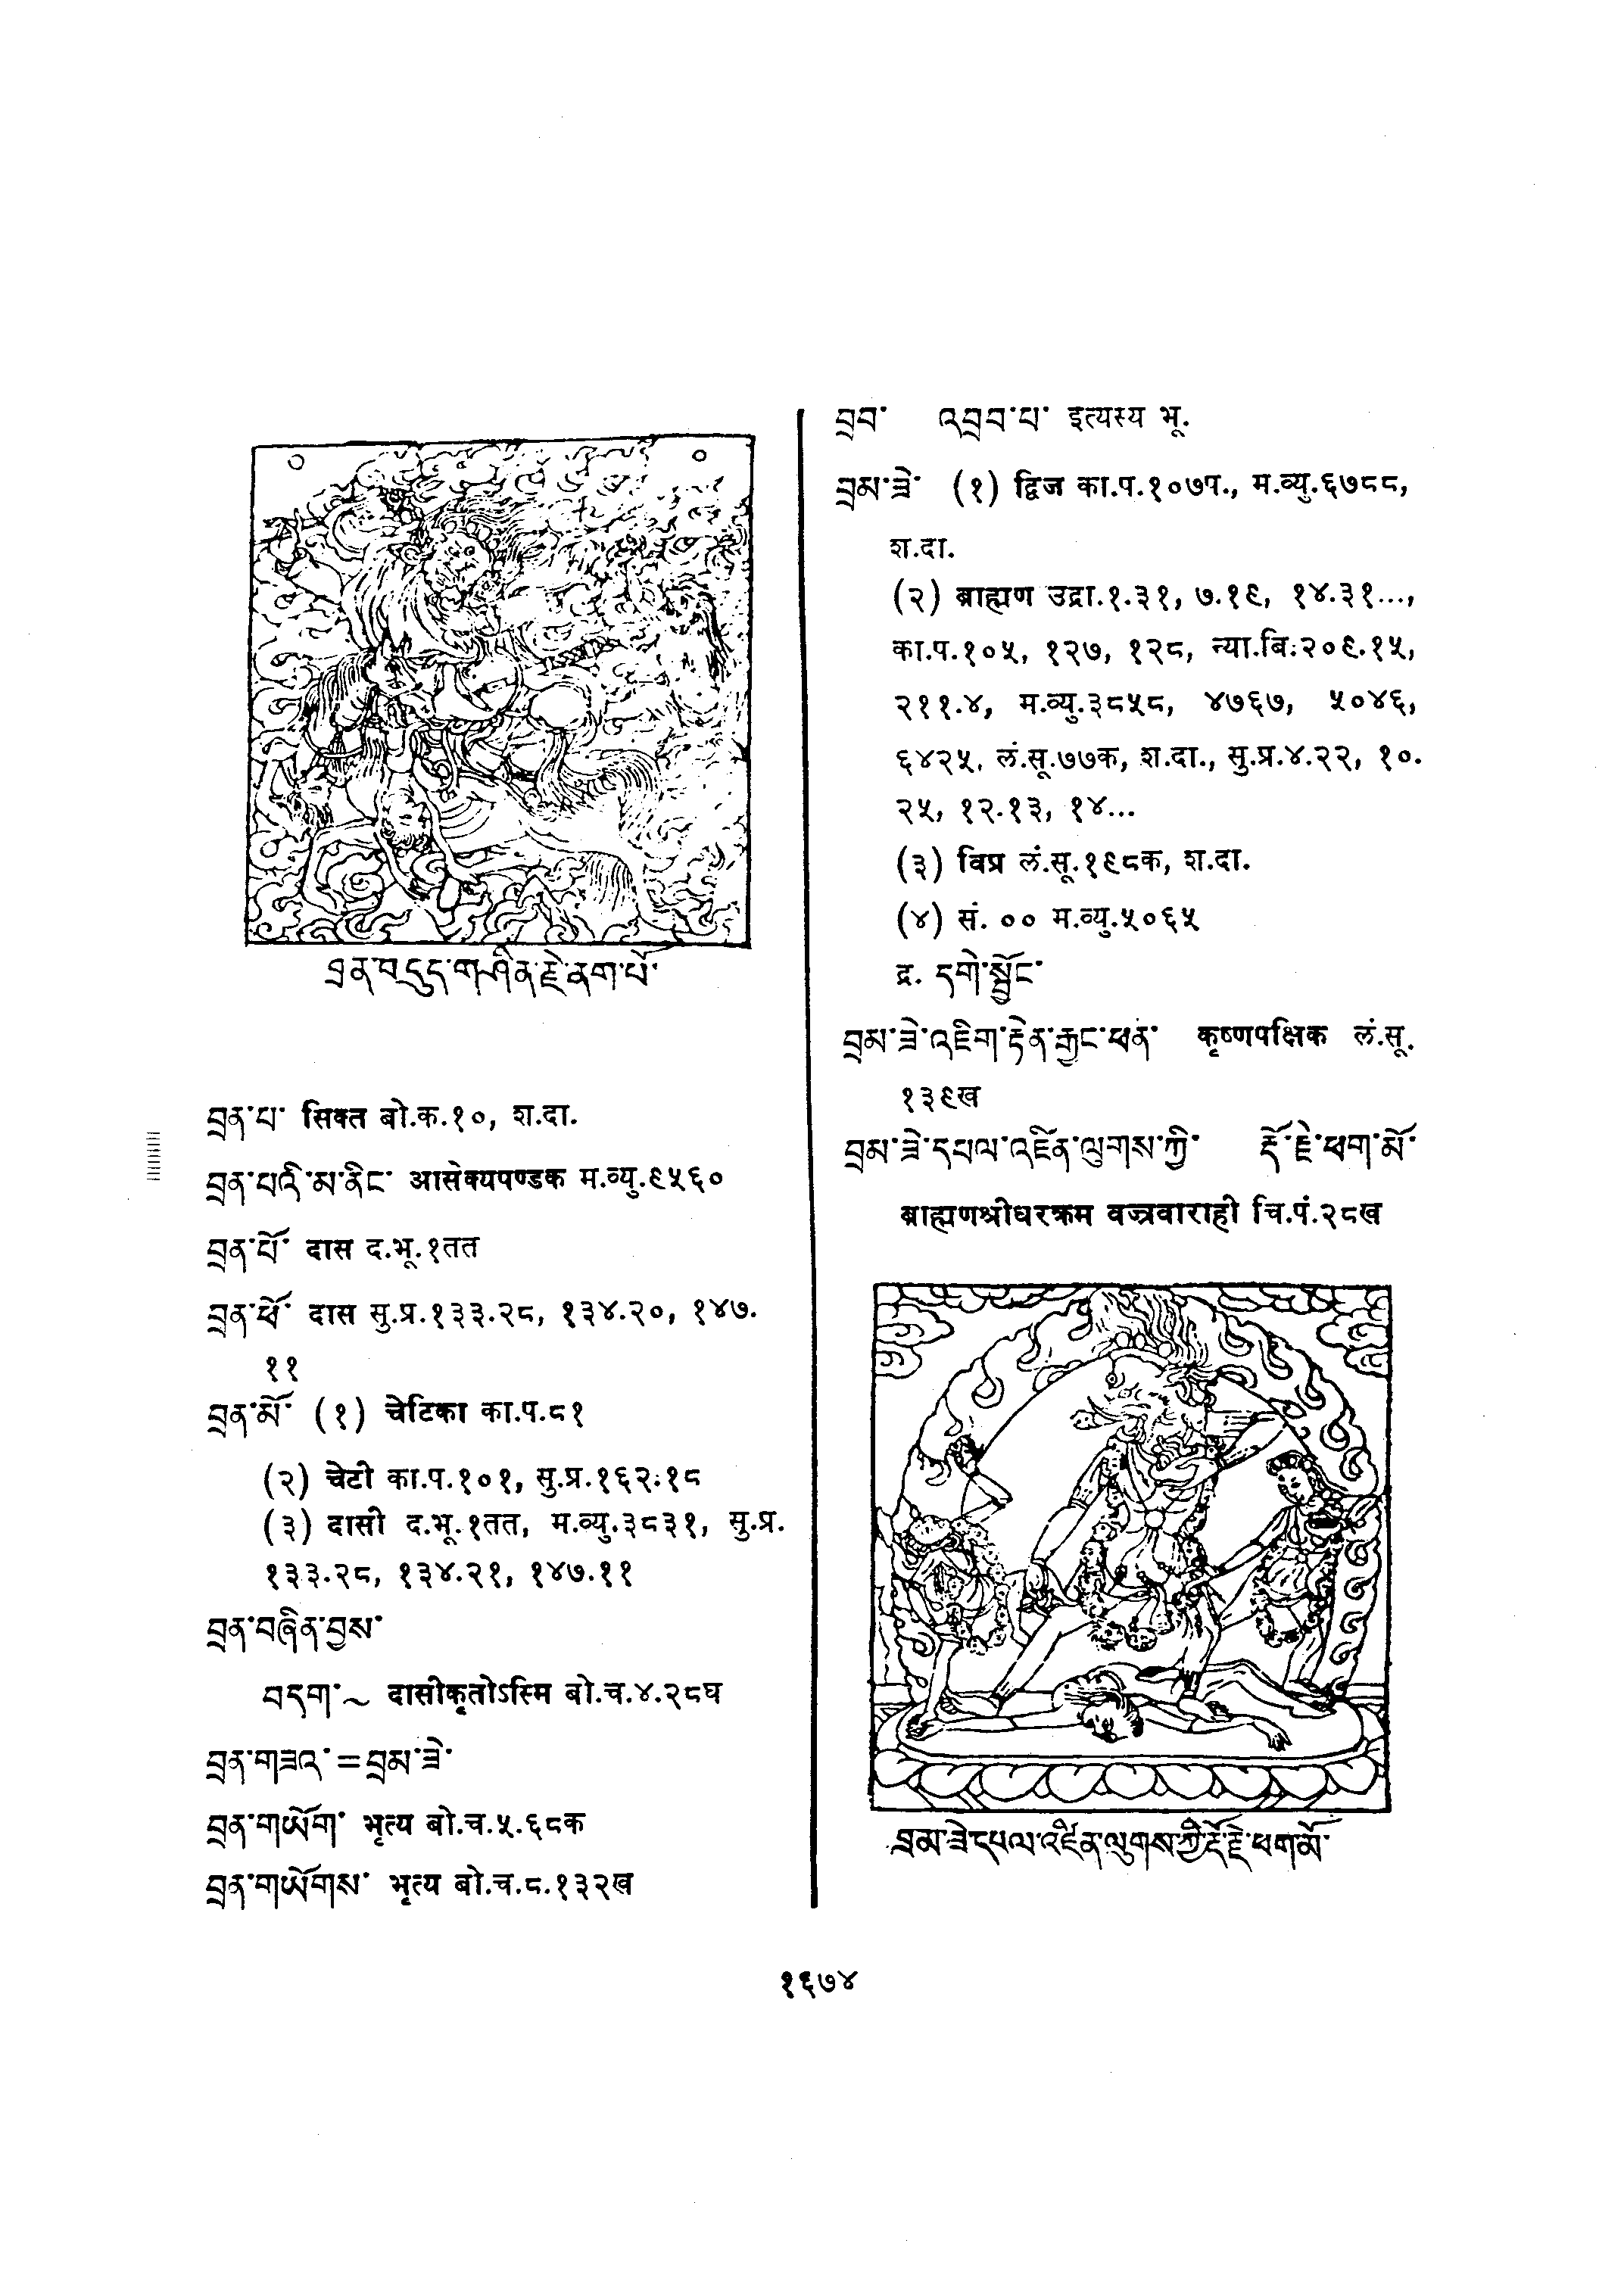 བྲན་བདུད་གཤིན་རྗེ་ནག་པོ་
བྲན་པ་ सिक्त बो.क.१०, श.दा.
བྲན་པའི་མ་ནིང་ आसेक्यपण्डक म.व्यु.९५६०
བྲན་པོ་ दास द.भू.१तत
བྲན་ཕོ་ दास सु.प्र.१३३.२८, १३४.२०, १४७.
११
བྲན་མོ་ (१) चेटिका का.प.८१
(२) चेटी का.प.१०१, सु.प्र.१६२.१८
(३) दासी द.भू.१तत, म.व्यु.३८३१, सु.प्र.
१३३.२८, १३४.२१, १४७.११
བྲན་བཞིན་བྱས་
བདག་~ दासीकृतोऽस्मि बो.च.४.२८घ
བྲན་གཟའ་=བྲམ་ཟེ་
བྲན་གཡོག་ भृत्य बो.च.५.६८क
བྲན་གཡོགས་ भृत्य बो.च.८.१३२ख
བྲབ་ འབྲབ་པ་ इत्यस्य भू.
བྲམ་ཟེ་ (१) द्विज का.प.१०७प., म.व्यु.६७८८,
श.दा.
(२) ब्राह्मण उद्रा.१.३१, ७.१९, १४.३१...,
का.प.१०५, १२७, १२८, न्या.बि.२०९.१५,
२११.४, म.व्यु.३८५८, ४७६७, ५०४६,
६४२५, लं.सू.७७क, श.दा., सु.प्र.४.२२, १०.
२५, १२.१३, १४...
(३) विप्र लं.सू.१९८क, श.दा.
(४) सं. ०० म.व्यु.५०६५
द्र. དགེ་སྦྱོང་
བྲམ་ཟེ་འཇིག་རྟེན་རྒྱང་ཕན་ कृष्णपक्षिक लं.सू.
१३९ख
བྲམ་ཟེ་དཔལ་འཛིན་ལུགས་ཀྱི་ རྡོ་རྗེ་ཕག་མོ་
ब्राह्मणश्रीधरक्रम वज्रवाराही चि.पं.२८ख
བྲམ་ཟེ་དཔལ་འཛིན་ལུགས་ཀྱི་རྡོ་རྗེ་ཕག་མོ་
१६७४